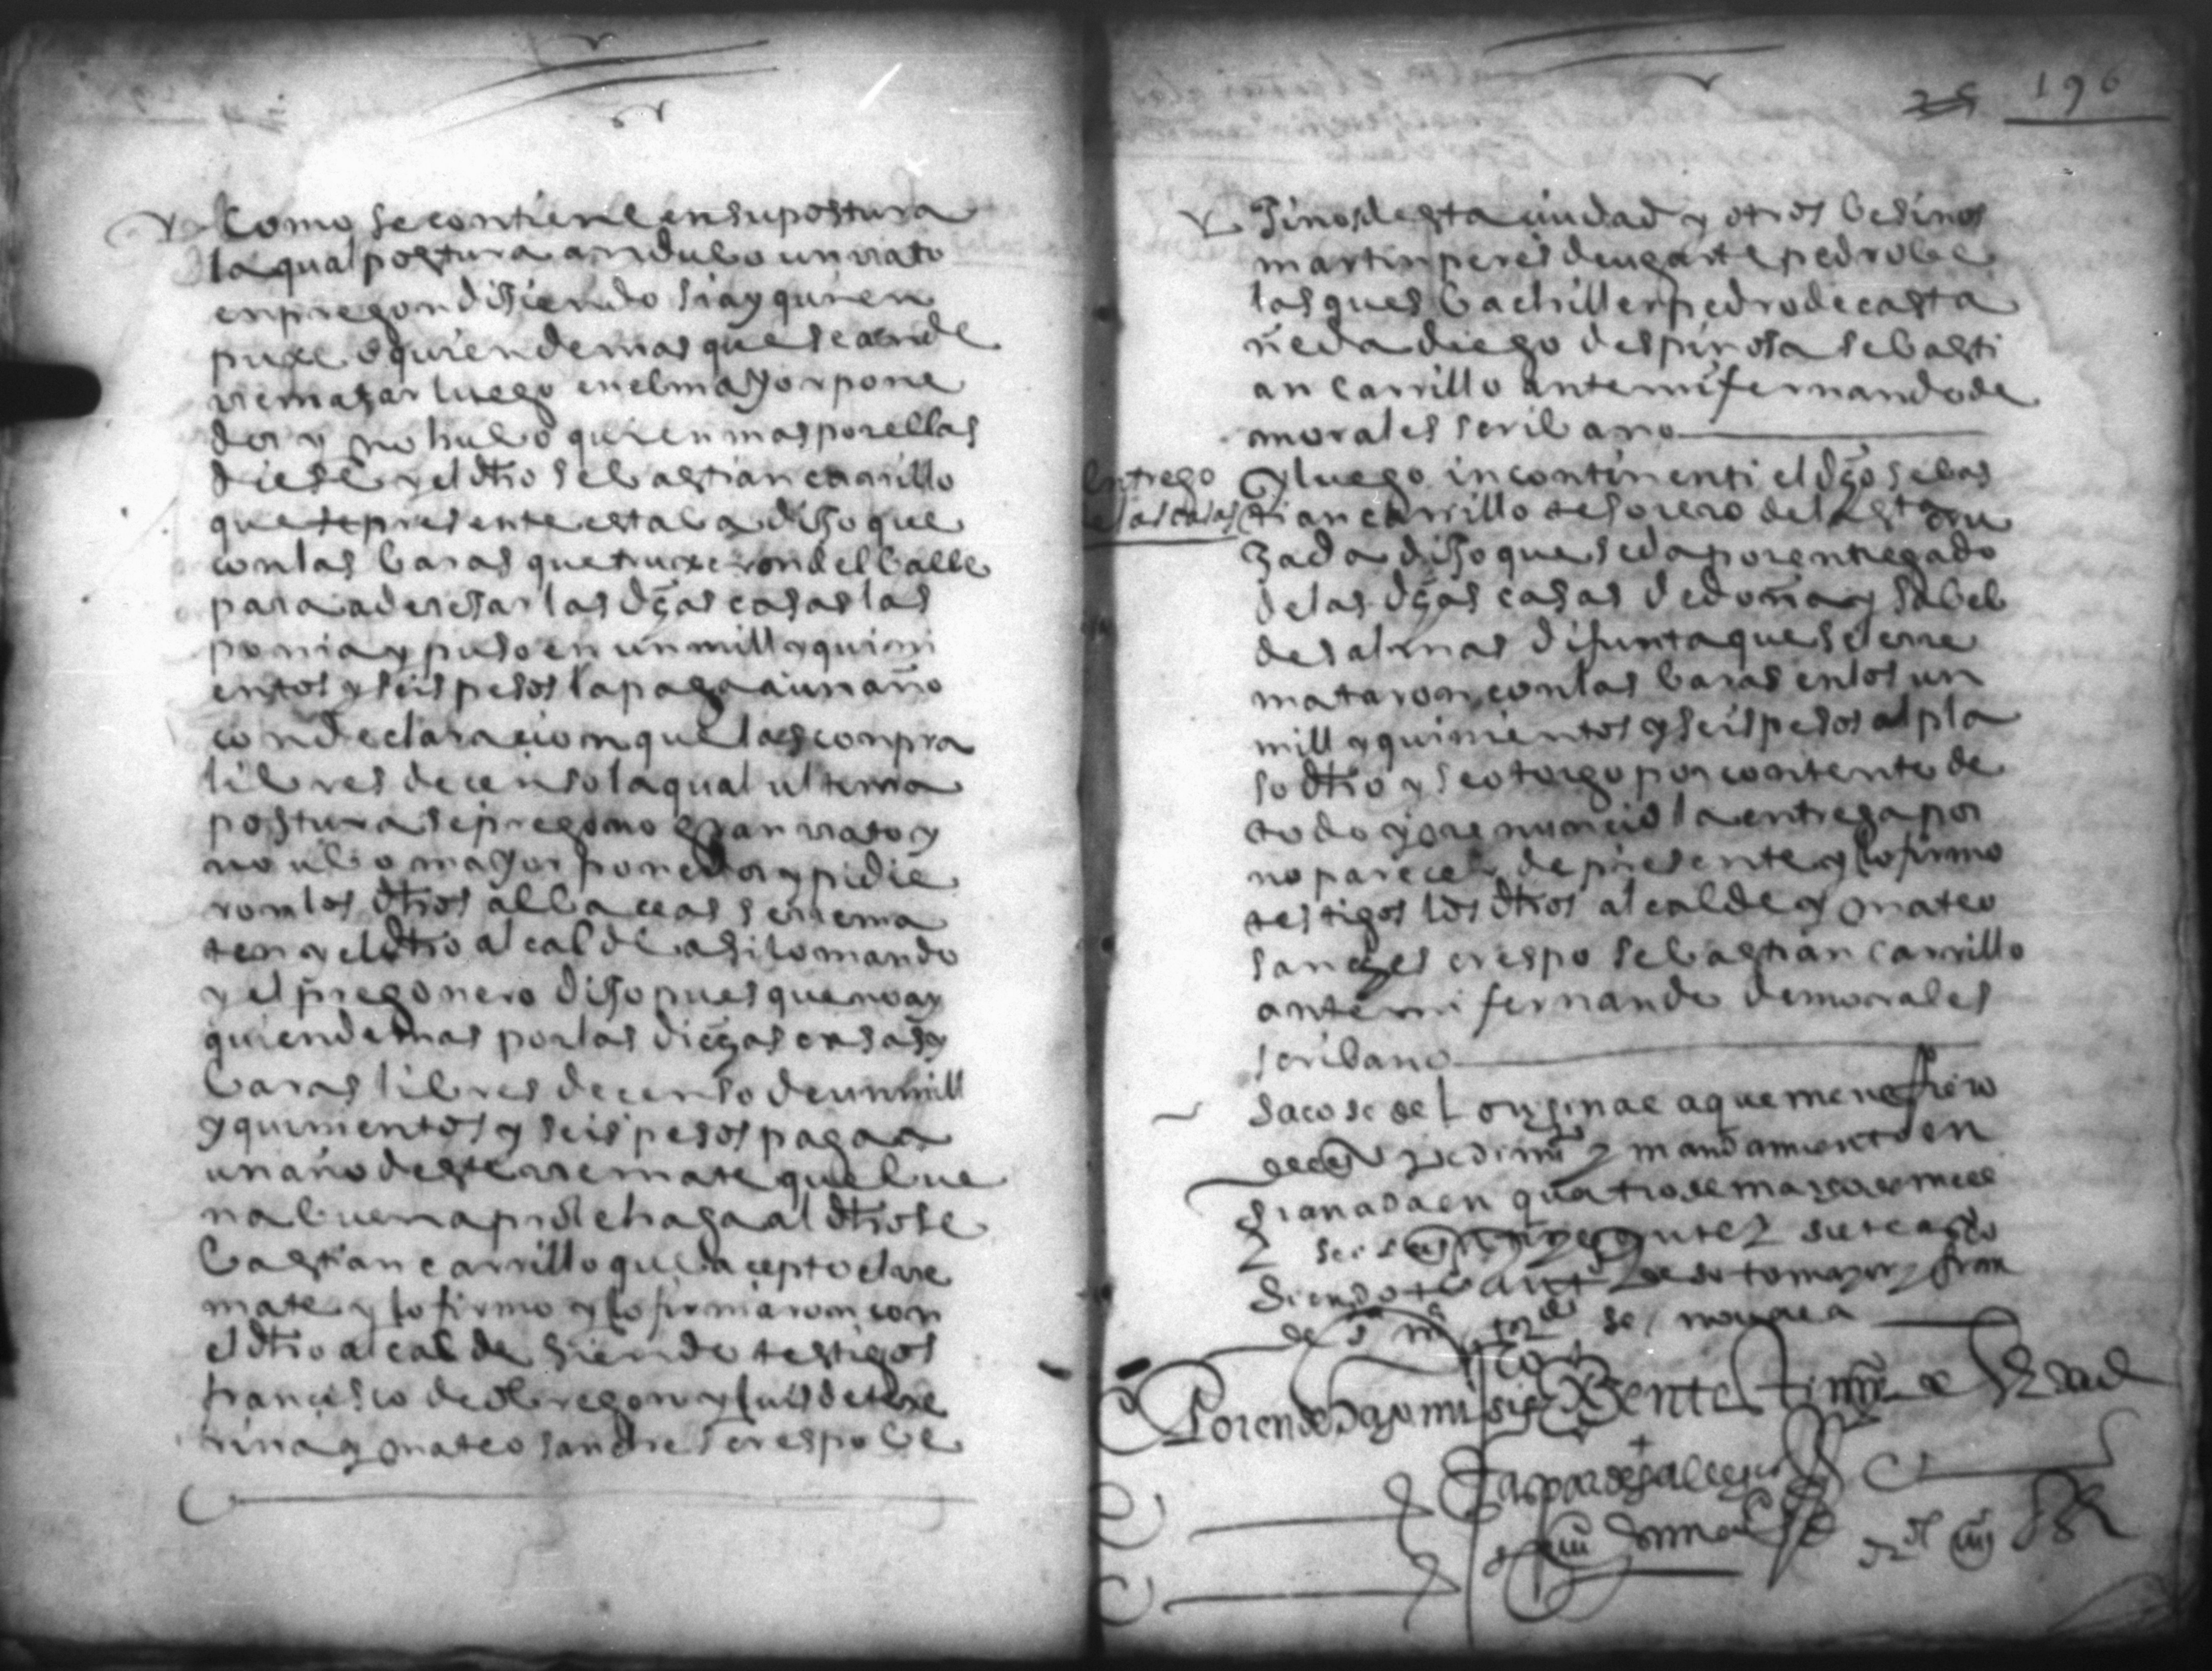 Como se contiene en su postura
la qual postura andubo un rrato
en pregon disiendo si ay quien
puxe o quien de mas que se a de
rrematar luego en el mayor pone
dor y no hubo quien mas por ellas
diese y el dho sebastian carrillo
que presente estaba dijo que
con las baras que truxeron del balle
para aderesar las dhas casas las
ponia y puso en un mill y quini
entos y seis pesos la paga a un año
con declaracion que las conpra
libres de censo la qual ultema
postura se pregono gran rrato y
no ubo mayor ponedor y pidie
ron los dhos albaceas se rrema
ten y el dho alcalde asi lo mando
y el pregonero dijo pues que no ay
quien de mas por las dichas casas y
baras libres de censo de un mill
y quinientos y seis pesos paga a
un año deste rremate que bue
na buena pro le haga al dho se
bastian carrillo que la cepto el rre
mate y lo firmo y lo firmaron con
el dho alcalde siendo testigos
francisco de obregon y luis de
rina y mateo sanches crespo be
25 196
sinos desta ciudad y otros besinos
martin peres de ugarte pedro be
lasques bachiller pedro de casta
ñeda diego despinosa sebasti
an carrillo ante mi fernando de
morales scribano
entrego
de las casas
y luego incontinenti el dho sebas
tian carrillo tesorero de la sta cru
zada dijo que se da por entregado
de las dhas casas de doña ysabel
de salinas difunta que se le rre
mataron con las baras en los un
mill y quinientos y seis pesos al pla
so dho y se otorgo por contento de
todo y rrenuncio la entrega por
no pareser de presente y lo firmo
testigos los dhos alcalde y mateo
sanches crespo sebastian carrillo
ante mi fernando de morales
scribano
sacose del original a que me refiero
de pedimio y mandamiento en
granada en quatro de março de mill
seis y siete años
siendo tos de sotomayor y fran
de
Por ende hago mi sig en testimo de verdad
Gaspar de gallegos